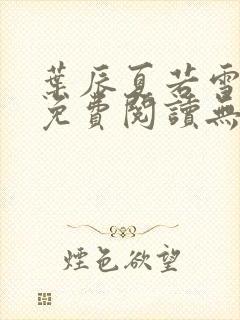 葉辰夏若雪
免費閱讀無
煙色欲望